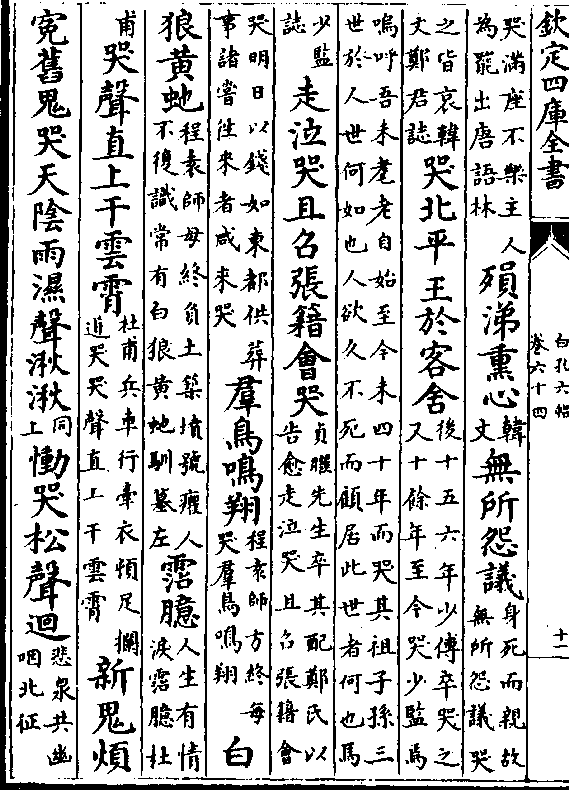 欽定四庫全書
白孔六帖
卷六十四
十一
哭滿座不樂主人
為罷出唐語林
殞涕熏心
韓
文
無所怨議
身死而親故
無所怨議哭
之皆哀韓
文鄭君誌
哭北平王於客舍
後十五六年少傅卒哭之
又十餘年至今哭少監焉
嗚呼吾未耄老自始至今未四十年而哭其祖子孫三
世於人世何如也人欲久不死而顧居此世者何也馬
少監
誌
走泣哭且召張籍會哭
貞曜先生卒其配鄭氏以
告愈走泣哭且召張籍會
哭明日以錢如東都供葬
事諸嘗往來者咸來哭
羣鳥鳴翔
程袁師方終每
哭羣鳥鳴翔
白
狼黃虵
程袁師母終負土築墳號癯人
不復識常有白狼黃虵馴墓左
霑臆
人生有情
淚霑臆杜
甫
哭聲直上干雲霄
杜甫兵車行牽衣頓足攔
道哭哭聲直上干雲霄
新鬼煩
寃舊鬼哭天陰雨濕聲湫湫
同
上
慟哭松聲迴
悲泉共幽
咽北征